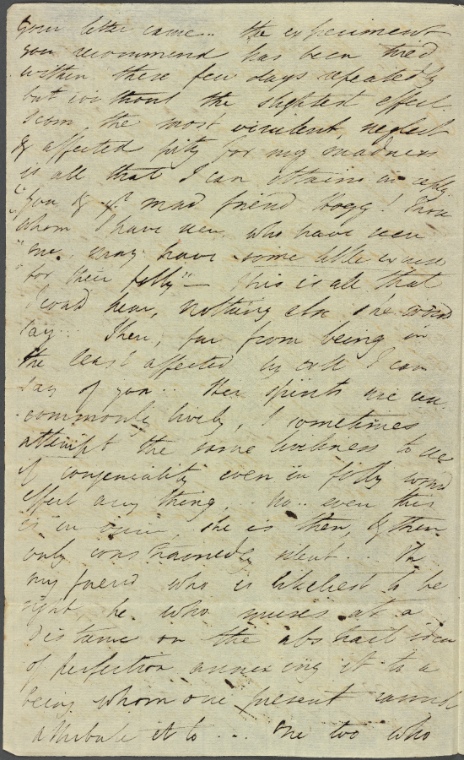 your letter came.. the experiment
you recommend has been tried
within these few days repeatedly
but without the slightest effect
Scorn, the most virulent, neglect
& affected pity for my madness
is all that I can obtain in reply
"You & yr mad friend Hogg! Those
whom I have seen, who have seen
"me may have some little excuse
"for their folly" — this is all that
I could hear, nothing else she would
say. Then, far from being in
the least affected by all I can
say of you.. Her spirits are un
commonly lively, I sometimes
attempt the same liveliness to see
if congeniality even in folly would
effect any thing.. no.. even this
is in vain, she is then, & then
only constrainedly silent.. Oh
my friend who is likeliest to be
right he who muses at a
distance on the abstract idea
of perfection annexing it to a
being whom one present cannot
attribute it to ... one too who